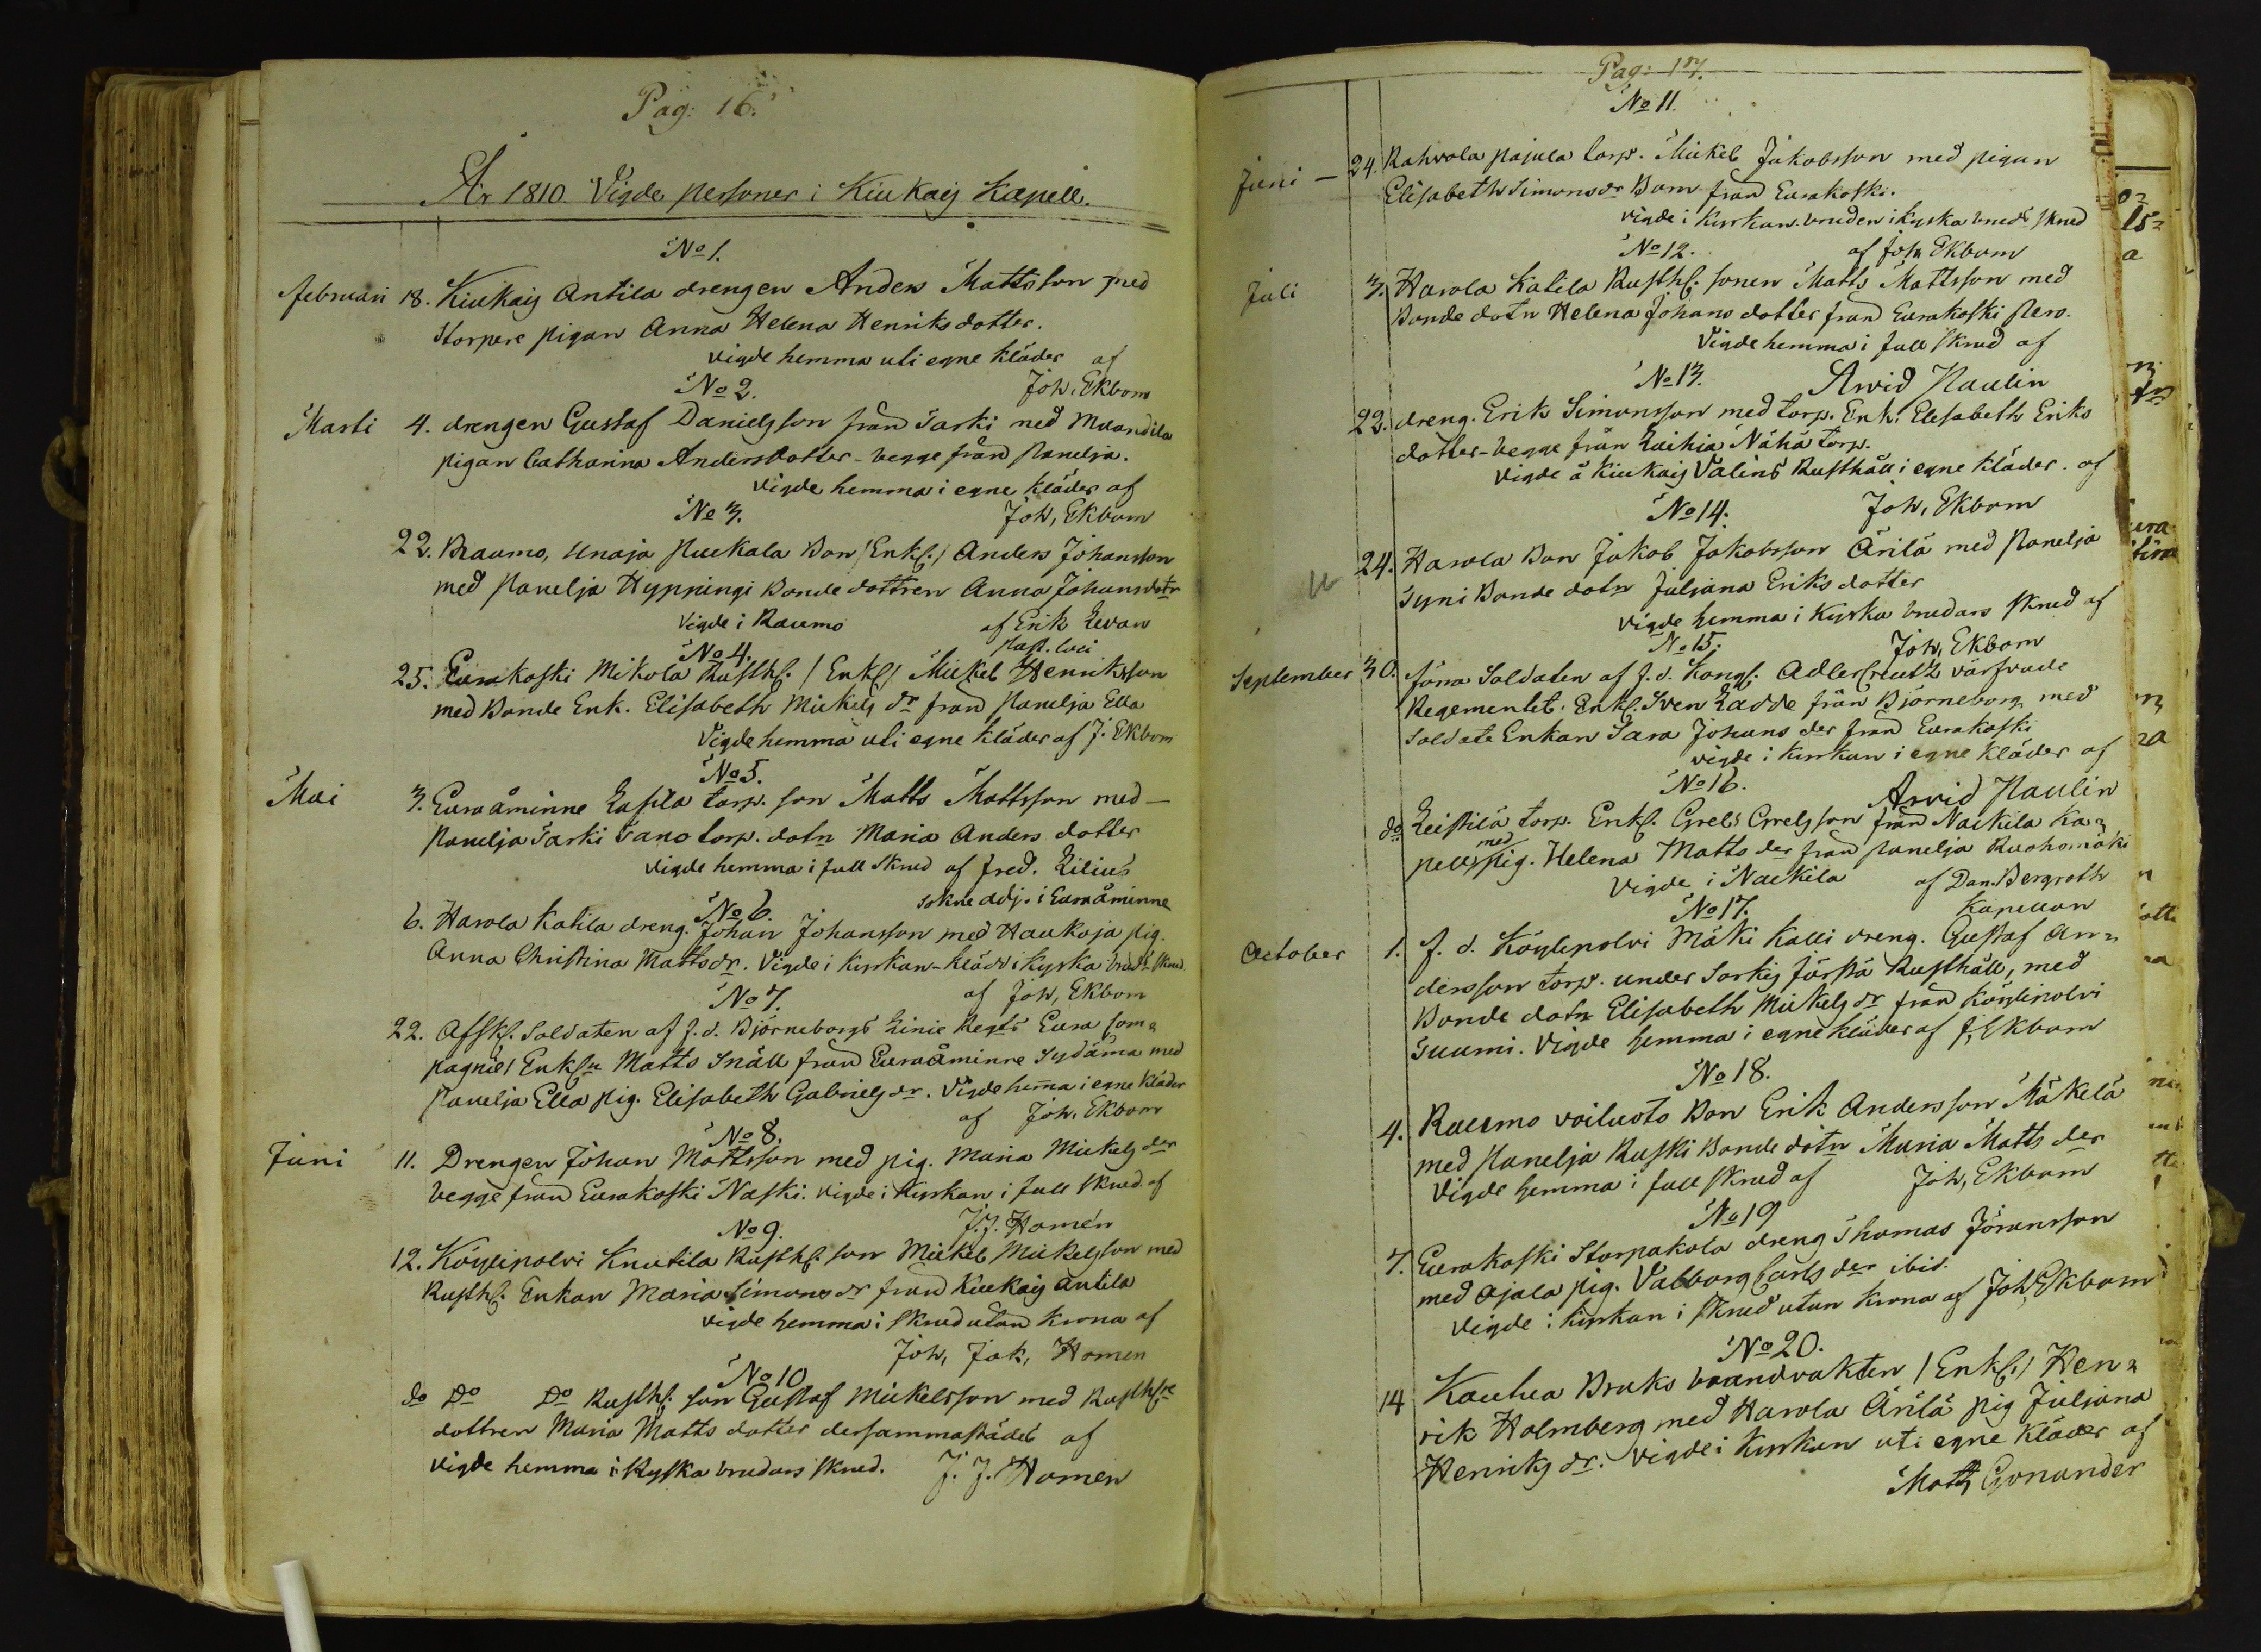 Pag: 16.
År 1810. Vigde personer i Kiukais Kapell.
No 1.
februari 18. Kiukais Antila drengen Anders Mattsson med
Storpere pigan Anna Helena Henriksdotter.
Vigde hemma uti egne kläder af
No 2. Joh. Ekbom
Marti 4. drengen Gustaf Danielsson från Sarki med
pigan Catharina Andersdotter - begge från Panelja.
Vigde hemma i egne kläder af
No 3. Joh. Ekbom
22. Raumo, Unaja Puckala Bon /Enkl./ Anders Johansson
med Panelja Hyppingi Bonde dottren Anna Johansdotr
Vigde i Raumo af Erik Levan
No 4. Past. loci
25. Eurakoski Mikola Rusth. /Enkl/ Mickel Henriksson
med Bonde Enk. Elisabeth Mickels dr från Panelja Ella
Vigde hemma uti egne kläder af J. Ekbom
No 5.
Mai 3. Euraåminne Lapila torp. son Matts Mattsson med -
Panelja Sarki Sano torp. dotn Maria Anders dotter
Vigde hemma i full skrud af Fred. Lilius
Sokne adj. i Euraåminne
No 6.
6. Harola Katila dreng. Johan Johansson med Haukoja pig.
Anna Christina Mattsdr. Vigde i kyrkan - klädd i kyska brud skrud
No 7. af Joh, Ekbom
22. Afsk. Soldaten af f. d. Björneborgs Linie Regts Eura Com=
pagnie / Enkl Matts Snäll från Euraåminne Sydäma med
Panelja Ella pig. Elisabeth Gabriels dr. Vigde hema i egne kläder
af Joh. Ekbom
No 8.
Juni 11. Drengen Johan Mattsson med pig. Maria Mickels der
begge från Eurakoski Naski. Vigde i Kyrkan i full skrud af
No 9. J. J. Homén
12. Köylipolvi Knutila Rusth. son Mickel Mickelsson med
Rusth. Enkan Maria Simons dr från Kiukais Antila
Vigde hemma i skrud utan krona af
Joh, Jak, Homen
No 10
do Do Do Rusth. son Gustaf Mickelsson med Rusth
dottren Maria Matts dotter dersammastädes af
Vigde hemma i kyska brudars skrud. J. J. Homen
Pag: 17.
No 11.
Juni - 24. Rahvola Pajula torp. Mickel Jakobsson med pigan
Elisabeth Simons dr Bom från Eurakoski.
Vigde i kyrkan. bruden i kyska brud skrud
No 12. af Joh Ekbom
Juli 3. Harola Katila Rusth. sonen Matts Mattsson med
Bonde dotn Helena Johans dotter från Eurakoski Pero.
Vigde hemma i full skrud af
No 13. Arvid Paulin
22. dreng. Erik Simonsson med torp. Enk. Elisabeth Eriks
dotter - begge från Laihia Nähä torp.
Vigde å Kiukais Valins Rusthåll i egne kläder. af
No 14. Joh, Ekbom
24. Harola Bon Jakob Jakobsson Ärilä med Panelja
Syni Bonde dotn Juliana Eriks dotter
Vigde hemma i kyska brudars skrud af
No 15. Joh, Ekbom
September 30. förra Soldaten af f. d. Kongl. Adlercreutz värfvade
Regementet. Enkl. Sven Ladde från Björneborg med
Soldate Enkan Sara Johans der från Eurakoski
Vigde i kyrkan i egne kläder af
No 16. Arvid Paulin
do Leistilä torp. Enkl. Grels Grelsson från Nackila Ka=
pell med pig. Helena Matts der från Panelja Ruohomäki
Vigde i Nackila af Dan. Bergroth
No 17. Kapellan
October 1. f. d. Köylipolvi Mäki Kalli dreng. Gustaf An=
dersson torp. under Sorkis Jussä Rusthåll, med
Bonde dotn Elisabeth Mickels dr från Köylipolvi
Suumi. Vigde hemma i egne kläder af J, Ekbom
No 18.
4. Raumo Voiluoto Bon Erik Andersson Mäkelä
med Panelja Ruski Bonde dotn Maria Matts der
Vigde hemma i full skrud af Joh, Ekbom
No 19
7. Eurakoski Storpakola dreng Thomas Jöransson
med Ojala pig. Valborg Carls der ibid.
Vigde i Kyrkan i skrud utan krona af Joh, Ekbom
No 20.
14 Kautua Bruks brandvakten /Enkl./ Hen=
rik Holmberg med Harola Ärilä pig Juliana
Henriks dr. Vigde i Kyrkan uti egne kläder af
Matts Gonander